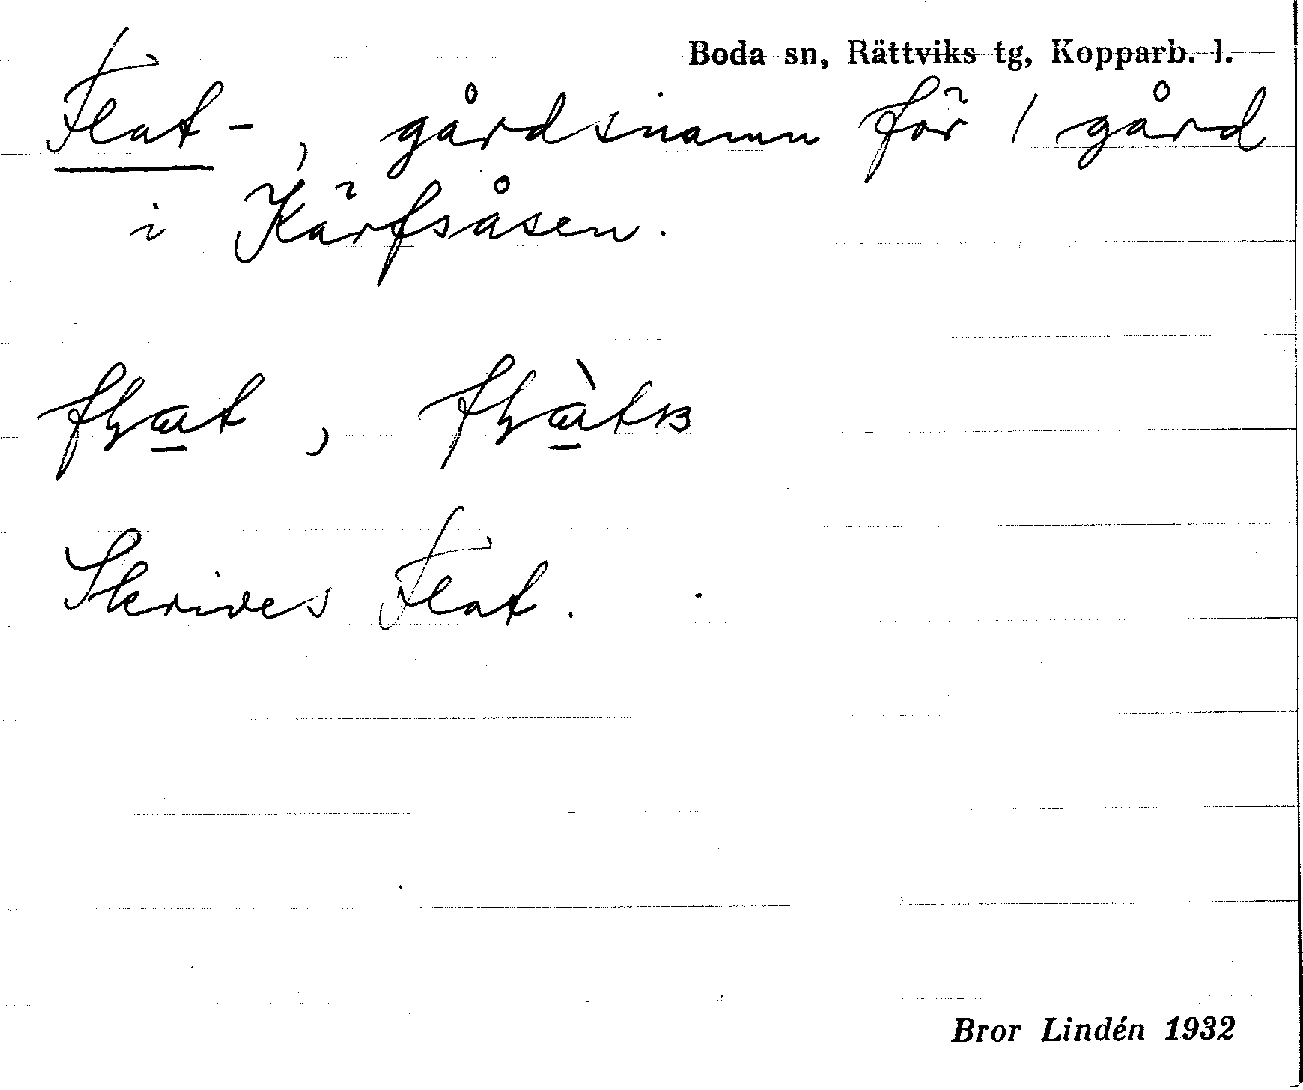 Boda sn, Rättviks tg, Kopparb. l.
Flat-, gårdsnamn för 1 gård
i Kärfsåsen.
Skrives Flat.
Bror Lindén 1932